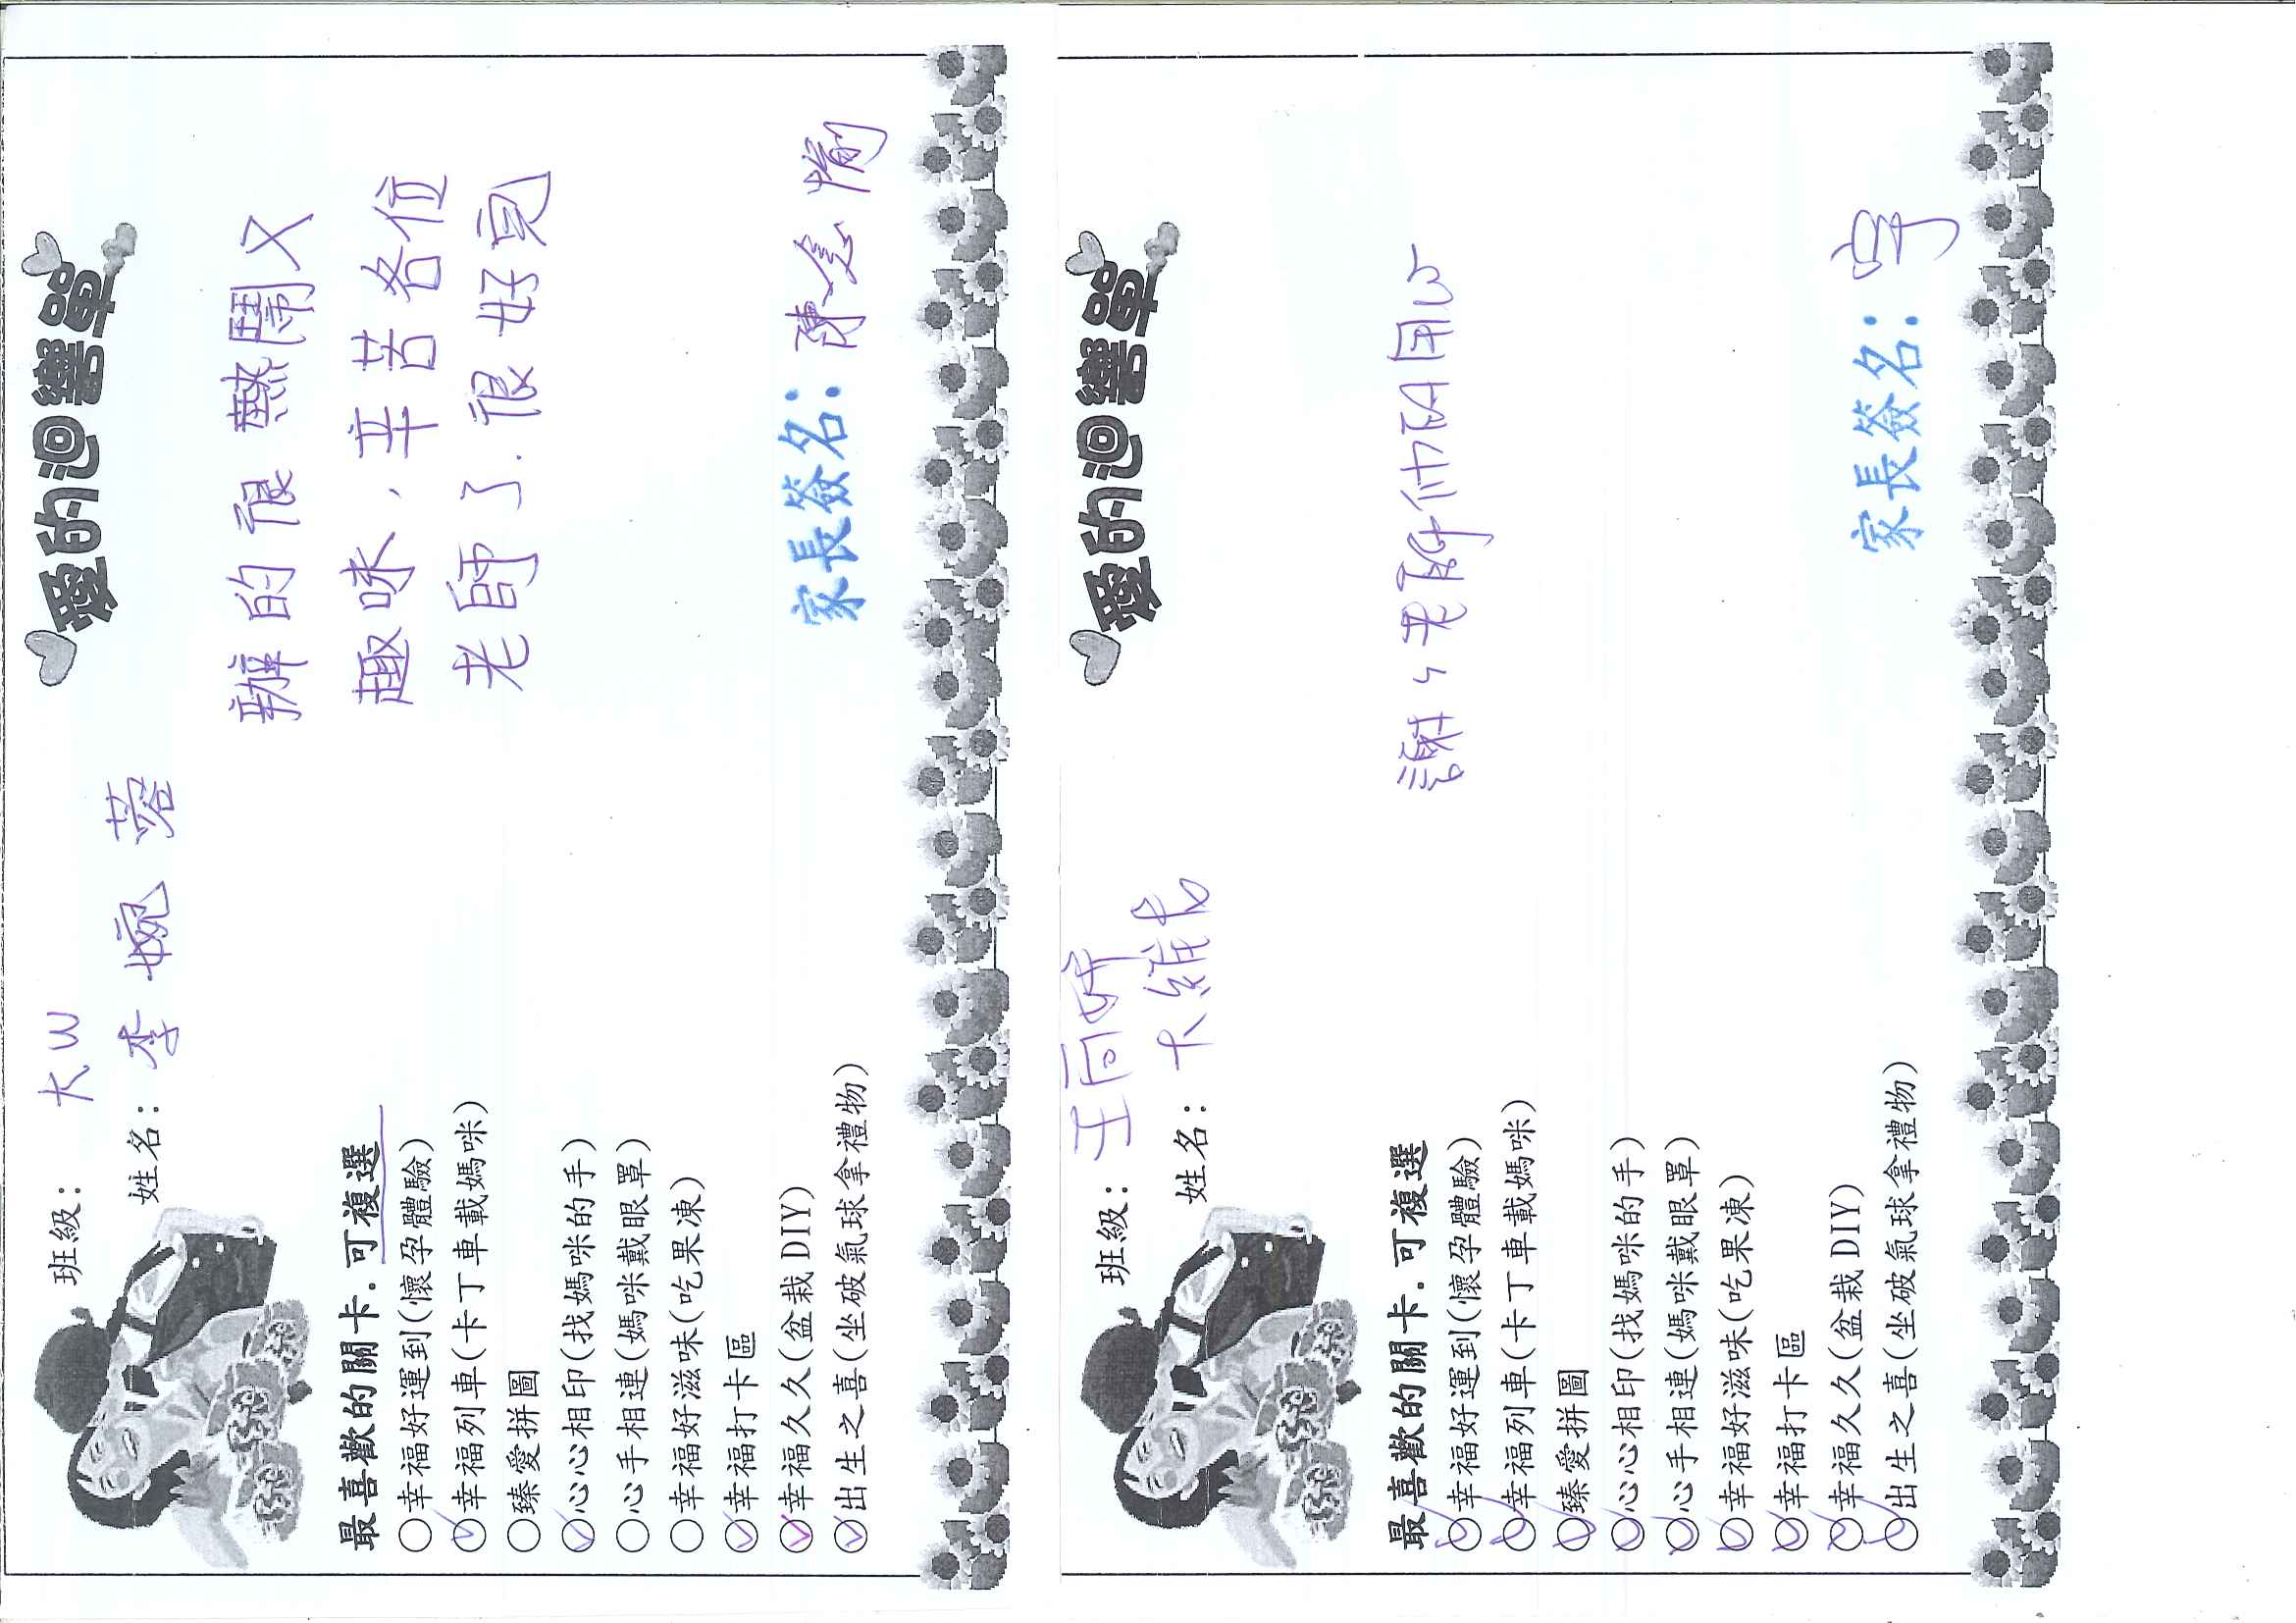 愛的迴響單
班級： 大W
姓名： 李婉蓉
辦的很熱鬧又
趣味，辛苦各位
老師了.很好玩
最喜歡的關卡.可複選
○幸福好運到(懷孕體驗)
○幸福列車(卡丁車載媽咪)
○臻愛拼圖
○心心相印(找媽咪的手)
○心手相連(媽咪戴眼罩)
○幸福好滋味(吃果凍)
○幸福打卡區
○幸福久久(盆栽DIY)
○出生之喜(坐破氣球拿禮物)
家長簽名：陳
愛的迴響單
班級：
姓名：
謝々老師
最喜歡的關卡.可複選
○幸福好運到(懷孕體驗)
○幸福列車(卡丁車載媽咪)
○臻愛拼圖
○心心相印(找媽咪的手)
○心手相連(媽咪戴眼罩)
○幸福好滋味(吃果凍)
○幸福打卡區
○幸福久久(盆栽DIY)
○出生之喜(坐破氣球拿禮物)
家長簽名：